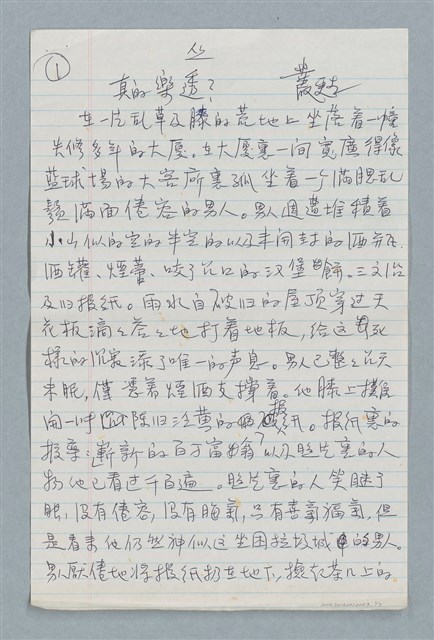 ①
真的樂透?
叢甦
在一片乱草及膝的荒地上坐落着一幢
失修多年的大廈。在大廈裏一间寬廣得像
蓝球埸的大客所裏孤坐着一个滿腮乱
鬚滿面倦容的男人。男人週遭堆積着
小山似的空的半空的以及未開封的酒瓶
酒罐、煙蒂、咬了几口的汉堡餅、三文治
及旧报紙。雨水自破旧的屋顶穿过天
花板滴々答々地打着地板,给这死
樣的沉寂添了唯一的声息。男人已整整几天
未眠,僅憑着煙酒支撑着。他膝上攤
開一叶陈旧泛黄的报紙。报紙裏的
报導:嶄新的百万富翁?以及照片裏的人
物他已看过千百遍。照片裏的人笑瞇了
眼,没有倦容,没有晦氣,只有喜氣福氣,但
是看来他仍然神似这坐困垃圾城中的男人。
男人厭倦地将报紙扔在地下,撿起茶几上的